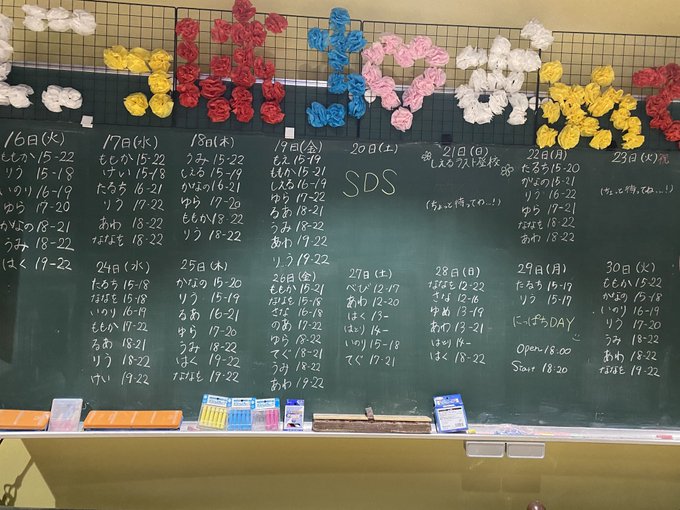 16日(火)
ももか 15-22
りう 15-18
いのり 16-19
ゆら 17-20
かなの 18-21
うみ 18-22
はく 19-22
17日(水)
ももか 15-22
けい 15-18
たるち 16-21
りう 17-21
あわ 18-22
ななせ 18-22
18日(木)
うみ 15-22
しえる 15-19
かなの 16-21
ゆら 17-20
ももか 18-22
りう 18-22
19日(金)
もえ 15-19
ももか 15-21
しえる 16-19
ゆら 17-22
るあ 18-21
うみ 18-22
あわ 19-22
りう 19-22
20日(土)
SDS
21日(日)
しえるラスト登校
(ちょっと待ってね...!)
22日(月)
たるち 15-20
かなの 15-21
りう 16-22
ゆら 17-21
るあ 18-21
ななせ 18-22
あわ 18-22
23日(火)祝
(ちょっと待ってね...!)
24日(水)
たるち 15-18
ななせ 15-18
いのり 16-19
ももか 17-22
るあ 18-21
りう 18-22
けい 19-22
25日(木)
かなの 15-20
りう 15-19
るあ 16-21
ゆら 17-20
うみ 18-22
はく 19-22
ななせ 19-22
26日(金)
ももか 15-21
ななせ 15-18
さな 16-18
のあ 17-22
ゆら 18-22
てぐ 18-21
うみ 18-22
あわ 19-22
27日(土)
べび 12-17
あわ 12-20
はこ 13-
はとり 14-
いのり 15-18
てぐ 17-21
28日(日)
ななせ 12-22
さな 12-16
ゆめ 13-19
あわ 13-21
はとり 14-
はく 18-22
29日(月)
たるち 15-17
りう 15-17
にっぱちDAY
Open 18:00
Start 18:20
30日(火)
ももか 15-22
かなの 15-18
いのり 16-19
りう 17-20
うみ 18-22
あわ 18-22
ななせ 19-22